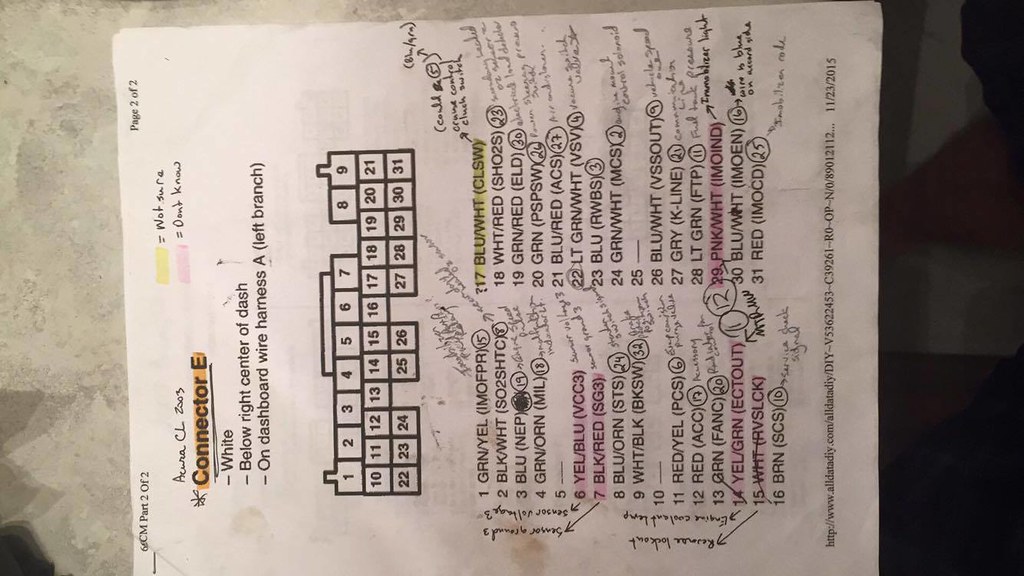 6CM Part 2 Of 2
Page 2 of 2
Acura CL 2003
= Not sure
= Dont know
* Connector E
- White
- Below right center of dash
- On dashboard wire harness A (left branch)
1 2 3 4 5 6 7 8 9
10 11 12 13 14 15 16 17 18 19 20 21
22 23 24 25 26 27 28 29 30 31
1 GRN/YEL (IMOFPR) 15
2 BLK/WHT (SO2SHTC) 8
3 BLU (NEP) 19
4 GRN/ORN (MIL) 18
5 —
6 YEL/BLU (VCC3) sensor voltage 3
Sensor voltage 3
7 BLK/RED (SG3) sensor ground 3
Sensor ground 3
8 BLU/ORN (STS) 24
9 WHT/BLK (BKSW) 32
10 —
11 RED/YEL (PCS) 6
12 RED (ACC) 17
13 GRN (FANC) 20
14 YEL/GRN (ECTOUT)
Engine coolant temp
15 WHT (RVSLCK)
Reverse lockout
16 BRN (SCS) 10 service check signal
?17 BLU/WHT (CLSW)
(could be 5)
cruise control
clutch switch
(Blu/grn)
18 WHT/RED (SHO2S) 23
19 GRN/RED (ELD) 30 electrical load detector
20 GRN (PSPSW) 26
21 BLU/RED (ACS) 27
22 LT GRN/WHT (VSV) 4
23 BLU (RWBS) 3
24 GRN/WHT (MCS) 2 engine mount control solenoid
25 —
26 BLU/WHT (VSSOUT) 9 vehicle speed
27 GRY (K-LINE) 21
28 LT GRN (FTP) 11 Fuel tank pressure
29 PNK/WHT (IMOIND) Immobilizer light
30 BLU/WHT (IMOEN) 16 wire is blue on accord side
31 RED (IMOCD) 25 Immobilizer code
1 12
http://www.alldatadiy.com/alldatadiy/DIY~V33622453~C39261~R0~OP~N/0/89012112... 11/23/2015